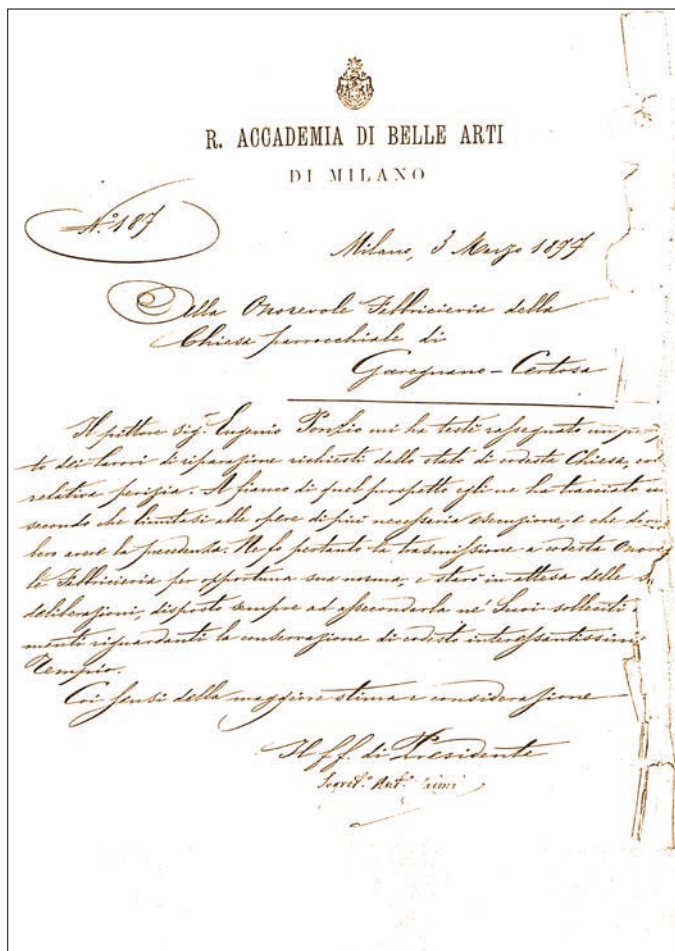 R. ACCADEMIA DI BELLE ARTI
DI MILANO
N.º 187
Milano, 3 Marzo 1877
Alla Onorevole Fabbricieria della
Chiesa parrocchiale di
Garegnano - Certosa
Il pittore sig.r Eugenio Ponzio mi ha testè rassegnato un
to dei lavori di riparazione richiesti dallo stato di codesta Chiesa, con
relativa perizia. A fianco di quel prospetto egli ne ha tracciato un
secondo che limitasi alle opere di più necessaria esecuzione, e che
bero avere la precedenza. Ne fo pertanto la trasmissione a codesta Onore
le Fabbricieria per opportuna sua norma, e starò in attesa delle
deliberazioni, disposto sempre ad assecondarla ne' Suoi solleciti
menti riguardanti la conservazione di codesto interessantissimo
Tempio.
Coi sensi della maggiore stima e considerazione
Il ff. di Presidente
Segret.º Ant.º